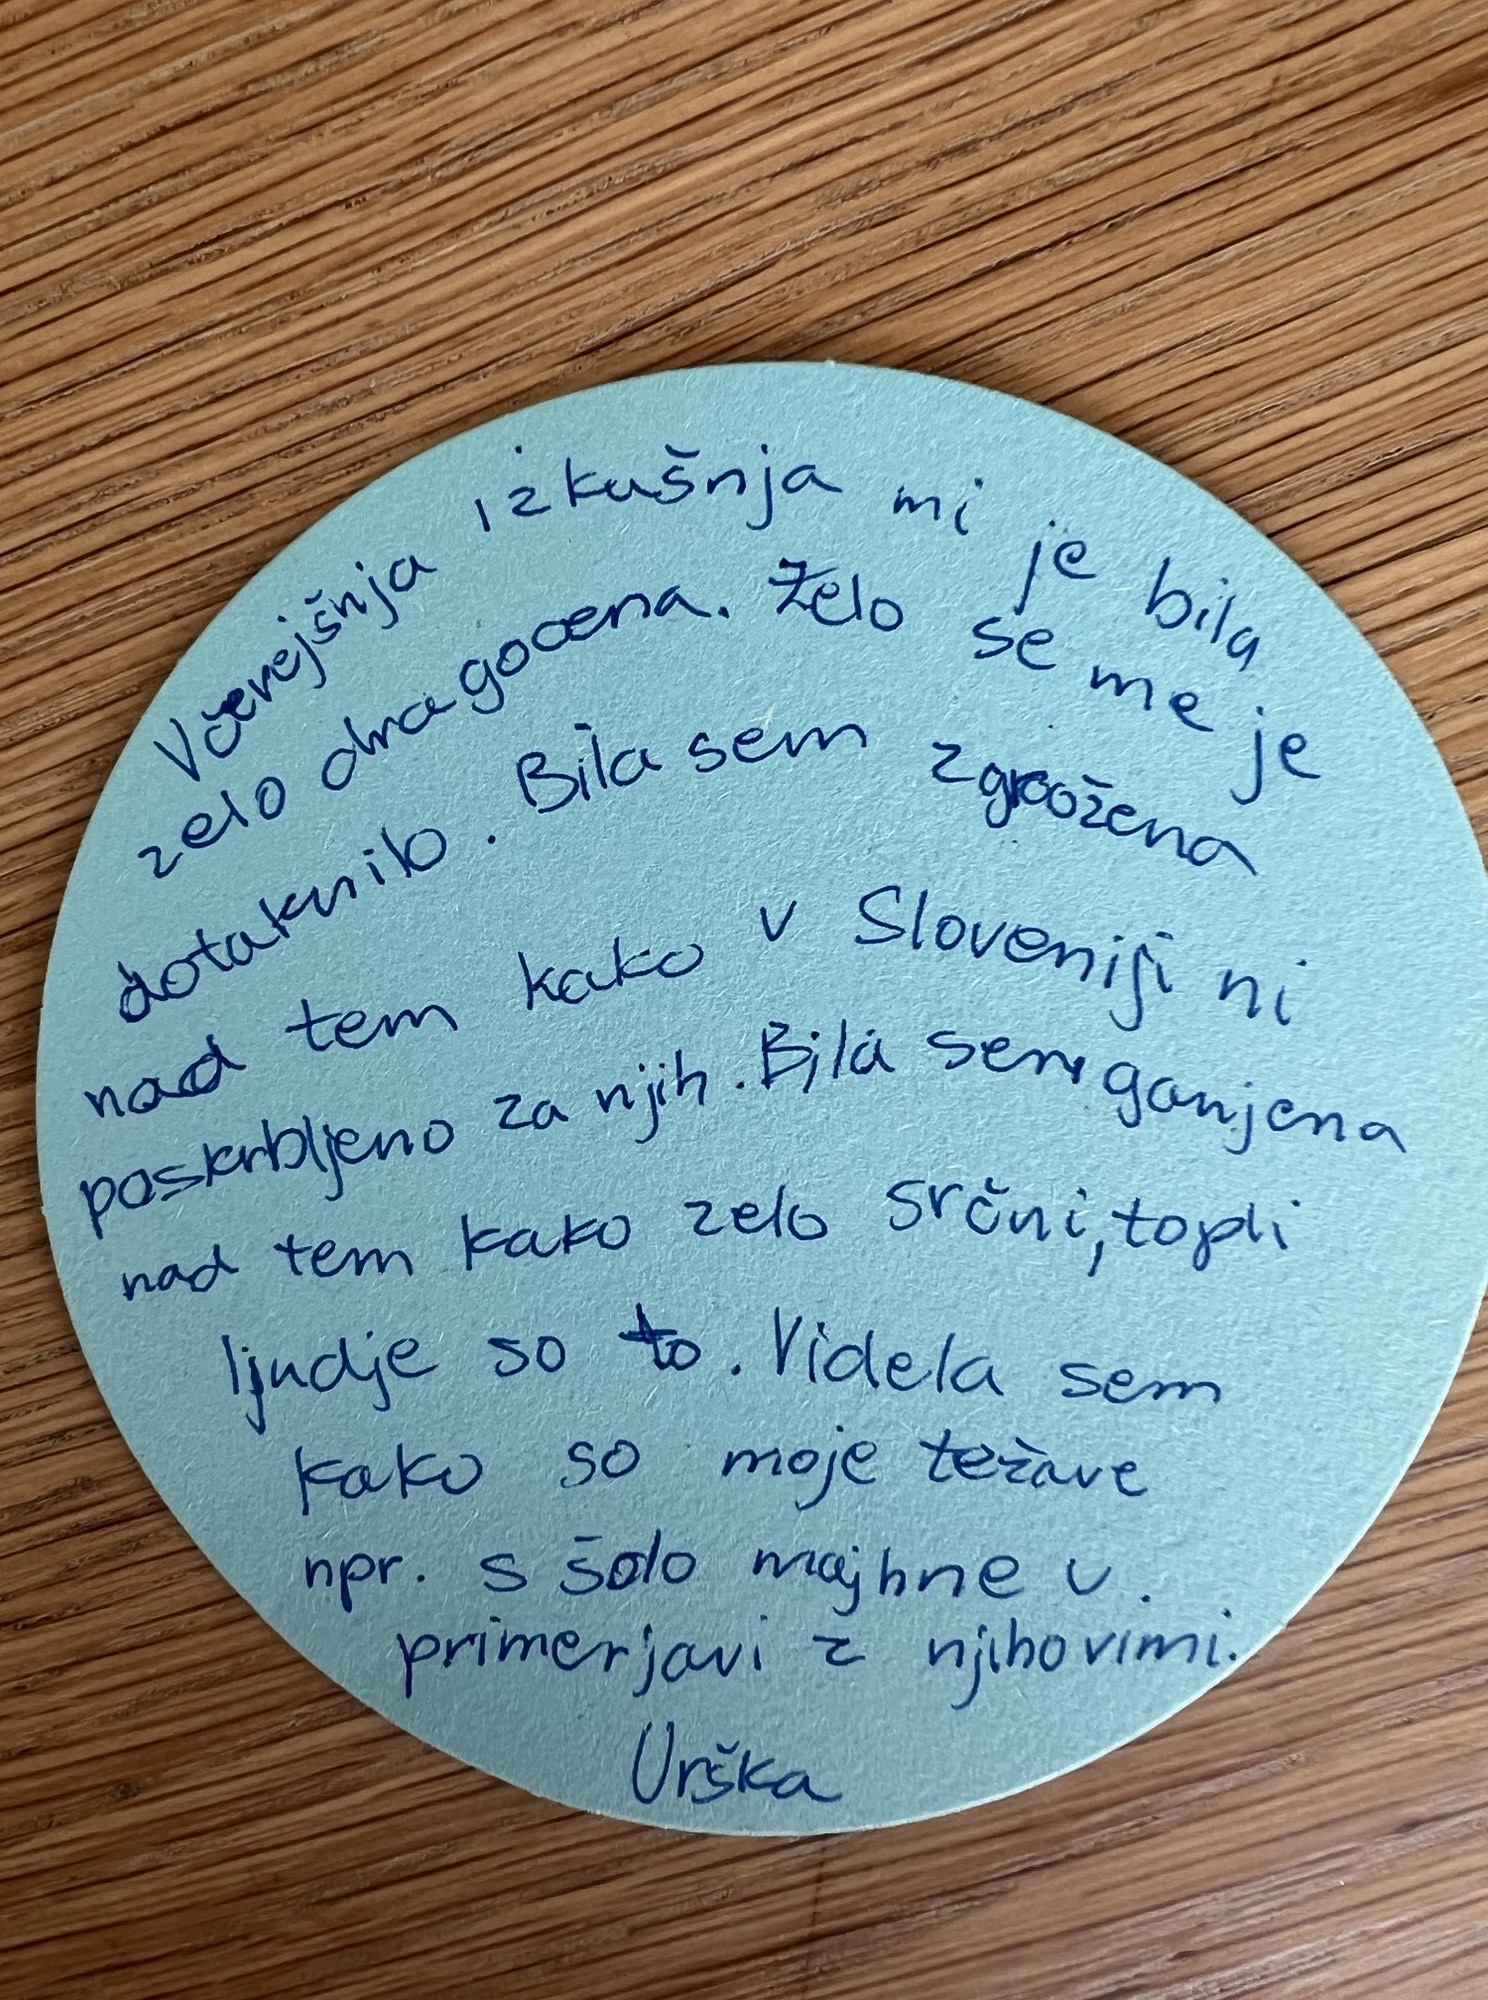 Včerejšnja izkušnja mi je bila
zelo dragocena. Zelo se me je
dotaknilo. Bila sem zgrožena
nad tem kako v Sloveniji ni
poskrbljeno za njih. Bila sem ganjena
nad tem kako zelo srčni, topli
ljudje so to. Videla sem
kako so moje težave
npr. s šolo majhne v.
primerjavi z njihovimi.
Urška